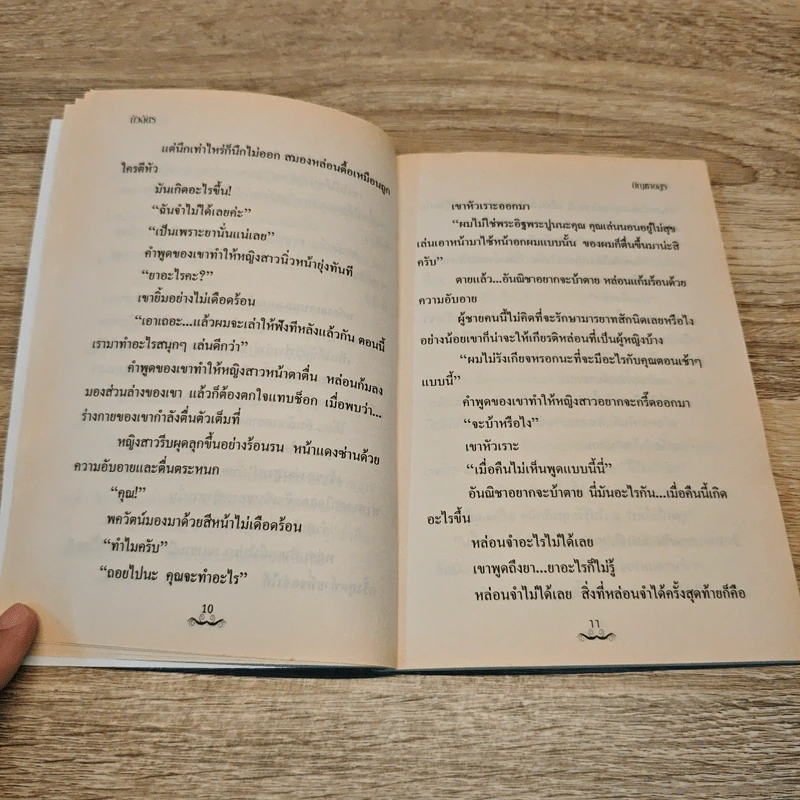 บัวฉัตร
แต่นึกเท่าไหร่ก็นึกไม่ออก สมองหล่อนตื้อเหมือนถูก
ใครตีหัว
มันเกิดอะไรขึ้น!
“ฉันจำไม่ได้เลยค่ะ”
“เป็นเพราะยานั่นแน่เลย”
คำพูดของเขาทำให้หญิงสาวนิ่วหน้ายุ่งทันที
“ยาอะไรคะ?”
เขายิ้มอย่างไม่เดือดร้อน
“เอาเถอะ...แล้วผมจะเล่าให้ฟังทีหลังแล้วกัน ตอนนี้
เรามาทำอะไรสนุกๆ เล่นดีกว่า”
คำพูดของเขาทำให้หญิงสาวหน้าตาตื่น หล่อนก้มลง
มองส่วนล่างของเขา แล้วก็ต้องตกใจแทบช็อก เมื่อพบว่า...
ร่างกายของเขากำลังตื่นตัวเต็มที่
หญิงสาวรีบผุดลุกขึ้นอย่างร้อนรน หน้าแดงซ่านด้วย
ความอับอายและตื่นตระหนก
“คุณ!”
พควัตน์มองมาด้วยสีหน้าไม่เดือดร้อน
“ทำไมครับ”
“ถอยไปนะ คุณจะทำอะไร”
10
เขาหัวเราะออกมา
“ผมไม่ใช่พระอิฐพระปูนนะคุณ คุณเล่นนอนอยู่ไม่สุข
เล่นเอาหน้ามาใช้หน้าอกผมแบบนั้น ของผมก็ตื่นขึ้นมาน่ะสิ
ครับ”
ตายแล้ว...อันณิชาอยากจะบ้าตาย หล่อนแก้มร้อนด้วย
ความอับอาย
ผู้ชายคนนี้ไม่คิดที่จะรักษามารยาทสักนิดเลยหรือไง
อย่างน้อยเขาก็น่าจะให้เกียรติหล่อนที่เป็นผู้หญิงบ้าง
“ผมไม่รังเกียจหรอกนะที่จะมีอะไรกับคุณตอนเช้าๆ
แบบนี้”
คำพูดของเขาทำให้หญิงสาวอยากจะกรี๊ดออกมา
“จะบ้าหรือไง”
เขาหัวเราะ
“เมื่อคืนไม่เห็นพูดแบบนี้นี่”
อันณิชาอยากจะบ้าตาย นี่มันอะไรกัน...เมื่อคืนนี้เกิด
อะไรขึ้น
หล่อนจำอะไรไม่ได้เลย
เขาพูดถึงยา...ยาอะไรก็ไม่รู้
หล่อนจำไม่ได้เลย สิ่งที่หล่อนจำได้ครั้งสุดท้ายก็คือ
11